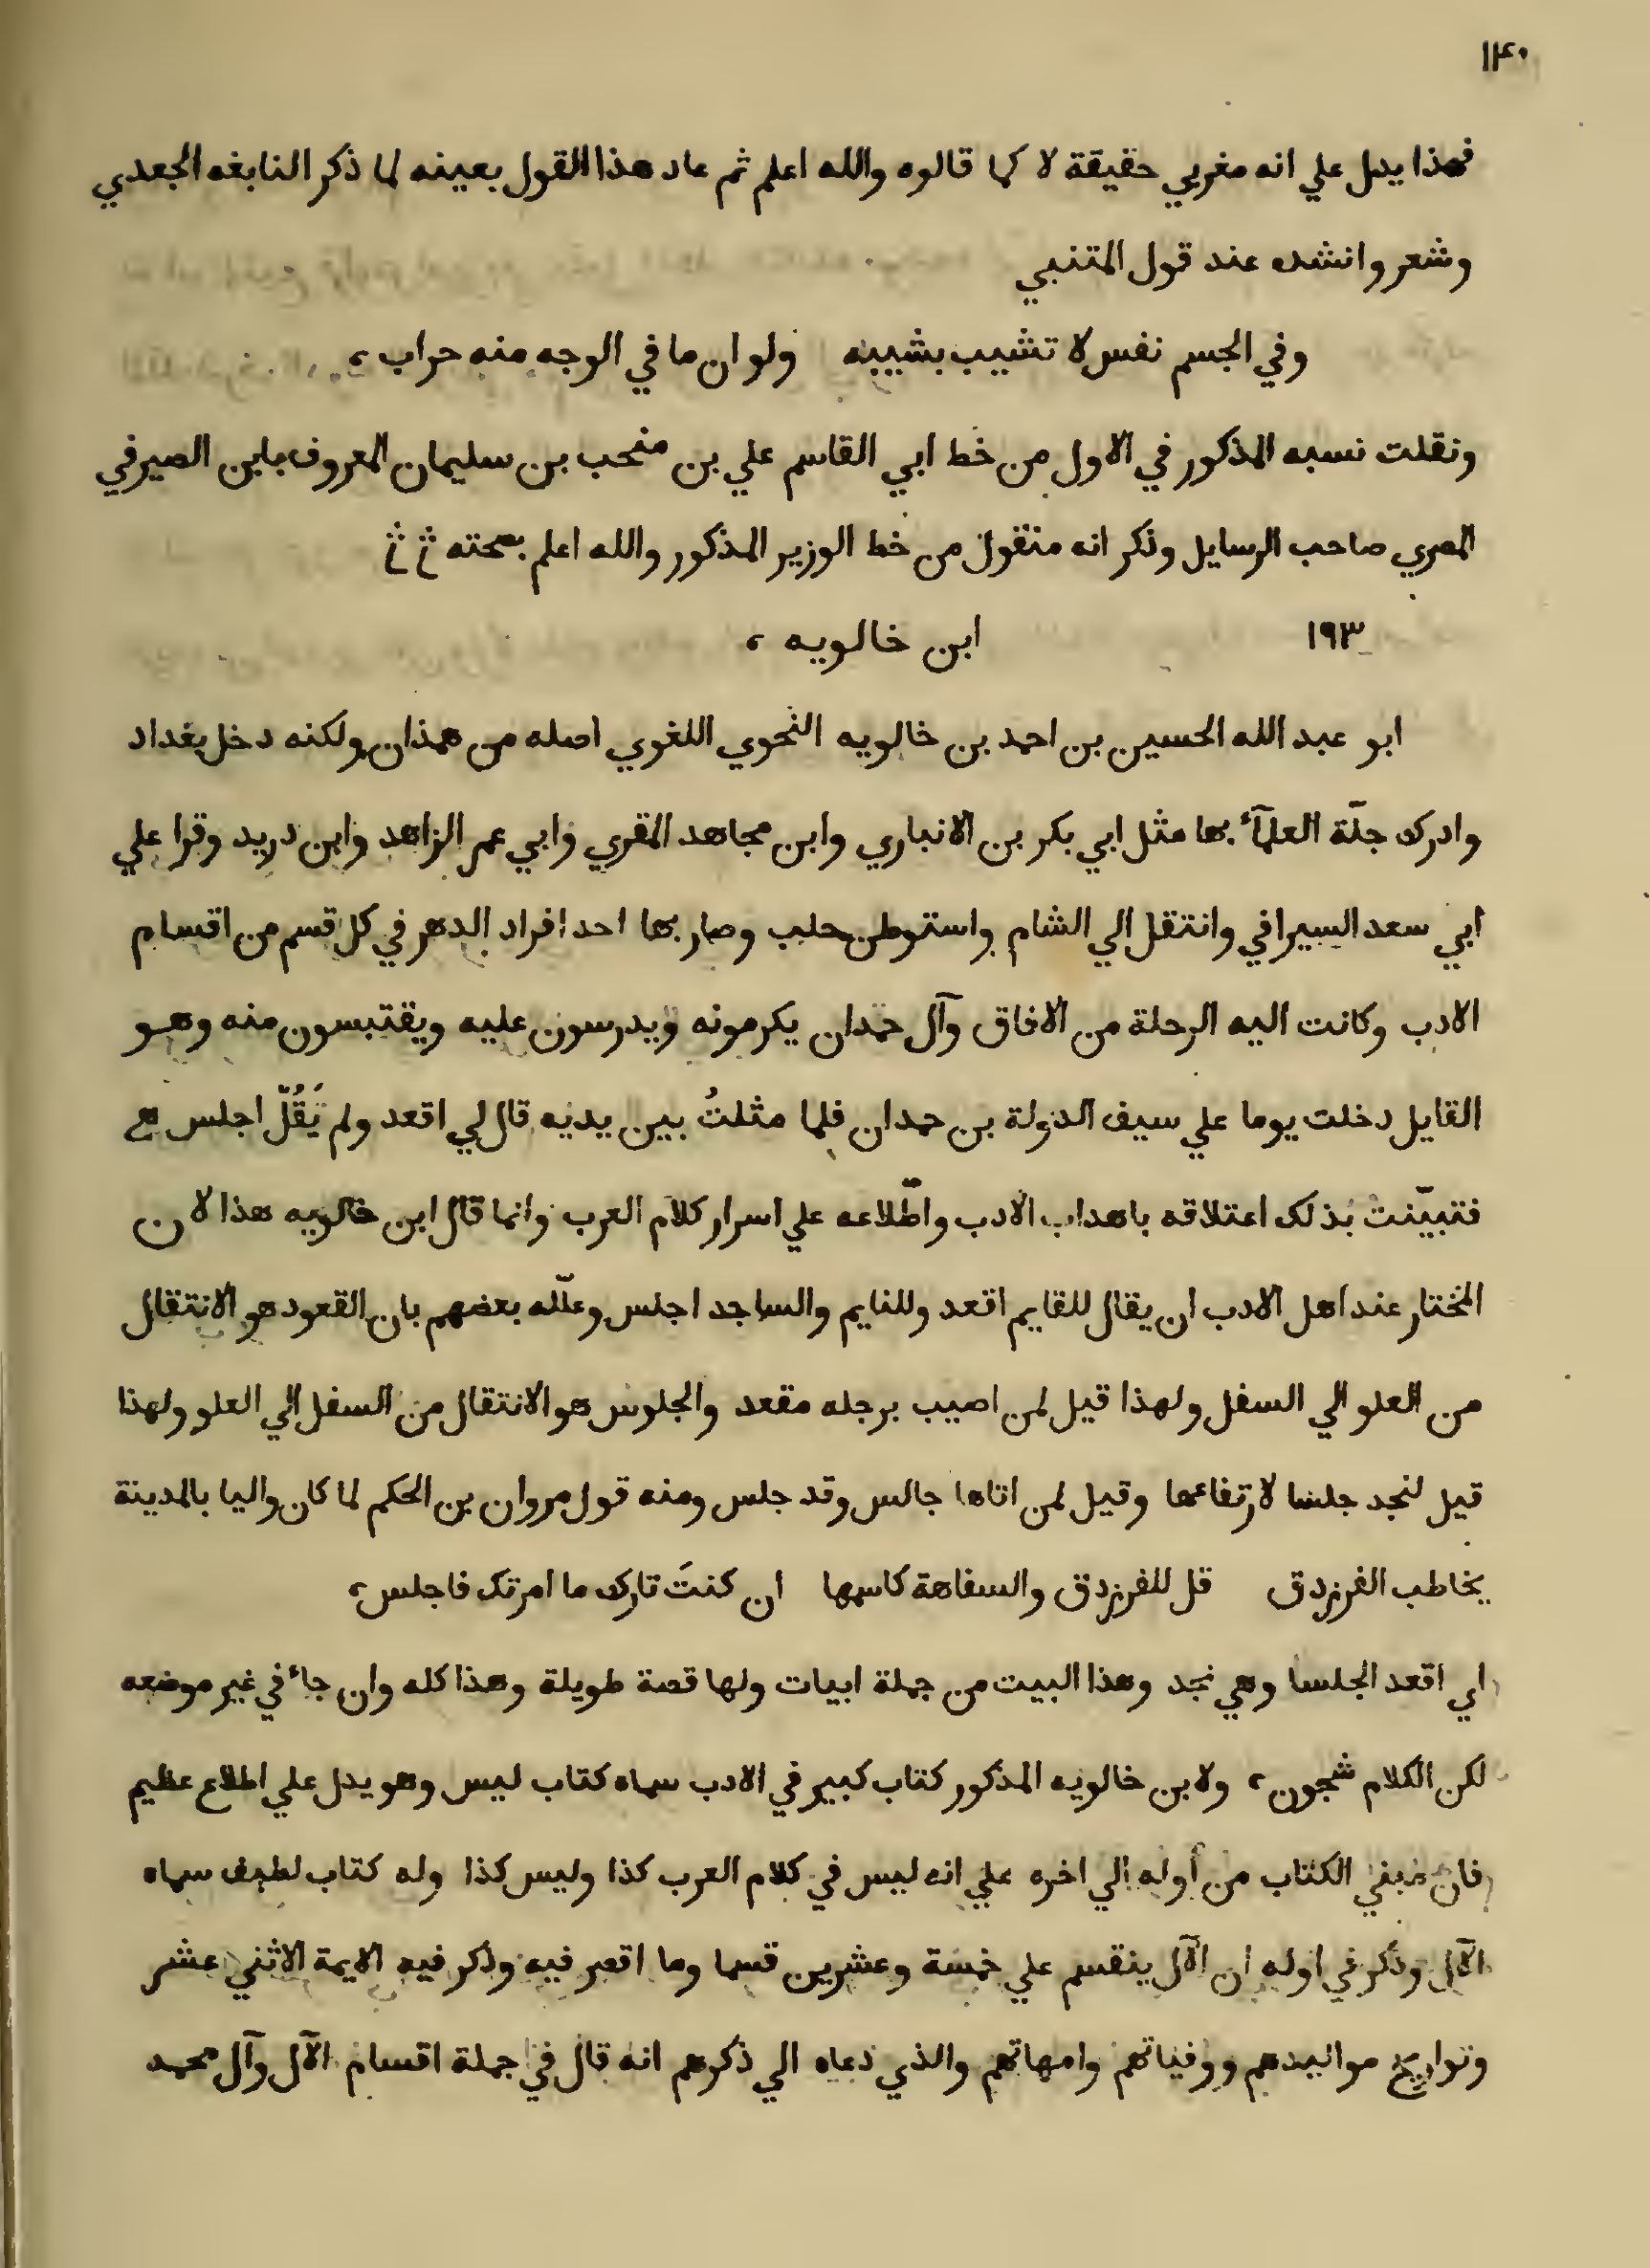 ١٤٠
فهذا يدل علي انه مغربي حقيقة لا كما قالوه والله اعلم ثم عاد هذا القول بعينه لما ذكر النابغه الجعدي
وشعر وانشده عند قول المتنبي
وفي الجسم نفس لا تشيب بشيبه ولو ان ما في الوجه منه حراب ،
ونقلت نسبه المذكور في الاول من خط ابي القاسم علي بن منحب بن سليمان المعروف بابن الصيرفي
المصري صاحب الرسايل وذكر انه منقول من خط الوزير المذكور والله اعلم بصحته
١٩٣ ابن خالويه ،
ابو عبد الله الحسين بن احمد بن خالويه النحوي اللغوي اصله من همذان ولكنه دخل بغداد
وادرك جلّة العلمآء بها مثل ابي بكر بن الانباري وابن مجاهد المقري وابي عمر الزاهد وابن دريد وقرا علي
ابي سعد السيرافي وانتقل الي الشام واستوطن حلب وصار بها احد افراد الدهر في كل قسم من اقسام
الادب وكانت اليه الرحلة من الافاق وآل حمدان يكرمونه ويدرسون عليه ويقتبسون منه وهو
القايل دخلت يوما علي سيف الدولة بن حمدان فلما مثلتُ بين يديه قال لي اقعد ولم يَقُلّ اجلس
فتبيّنت بذلك اعتلاقه باهداب الادب واطّلاعه علي اسرار كلام العرب وانما قال ابن خالويه هذا لان
المختار عند اهل الادب ان يقال للقايم اقعد وللنايم والساجد اجلس وعلّله بعضهم بان القعود هو الانتقال
من العلو الي السفل ولهذا قيل لمن اصيب برجله مقعد والجلوس هو الانتقال من السفل الي العلو ولهذا
قيل لنجد جلسا لارتفاعها وقيل لمن اتاها جالس وقد جلس ومنه قول مروان بن الحكم لما كان واليا بالمدينة
يخاطب الفرزدق قل للفرزدق والسفاهة كاسمها ان كنتَ تارك ما امرتك فاجلس ،
اي اقعد الجلسا وهي نجد وهذا البيت من جملة ابيات ولها قصة طويلة وهذا كله وان جاء في غير موضعه
لكن الكلام شجون ، ولابن خالويه المذكور كتاب كبير في الادب سماه كتاب ليس وهو يدل علي اطلاع عظيم
فان مبني الكتاب من أوله الي اخره علي انه ليس في كلام العرب كذا وليس كذا وله كتاب لطيف سماه
الآل وذكر في اوله ان الآل ينقسم علي خمسة وعشرين قسما وما اقصر فيه وذكر فيه الايمة الاثني عشر
وتواريخ مواليدهم ووفياتهم وامهاتهم والذي دعاه الي ذكرهم انه قال في جملة اقسام الآل وآل محمد